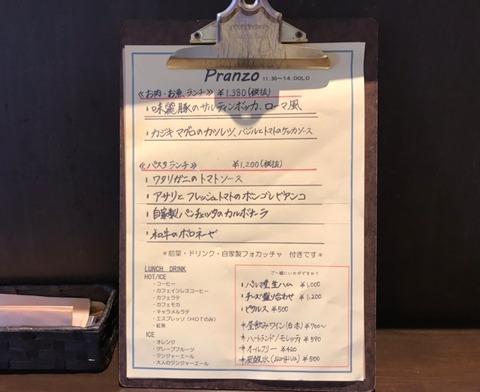 Pranzo 11:30〜14:00LO
≪お肉・お魚ランチ≫ ¥1,380(税抜)
・味麗豚のサルティンボッカ、ローマ風
・カジキマグロのカツレツ、バジルとトマトのケッカソース
≪パスタランチ≫ ¥1,200(税抜)
・ワタリガニのトマトソース
・アサリとフレッシュトマトのボンゴレビアンコ
・自家製パンチェッタのカルボナーラ
・和牛のボロネーゼ
＊前菜・ドリンク・自家製フォカッチャ 付きです＊
LUNCH DRINK
HOT/ICE
・コーヒー
・カフェインレスコーヒー
・カフェラテ
・カフェモカ
・キャラメルラテ
・エスプレッソ（HOTのみ）
・紅茶
ICE
・オレンジ
・グレープフルーツ
・ジンジャーエール
・大人のジンジャーエール
ご一緒にいかがですか？
・パルマ産生ハム ¥1,000
・チーズ盛り合わせ ¥1,200
・ピクルス ¥500
＋昼飲みワイン(白・赤) ¥700〜
＋ハートランド/モレッティ ¥590
＋オールフリー ¥420
＋炭酸水 ¥500